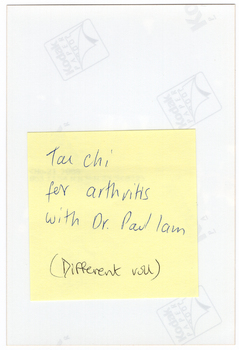 Tai chi
for arthritis
with Dr. Paul Lam
(Different roll)